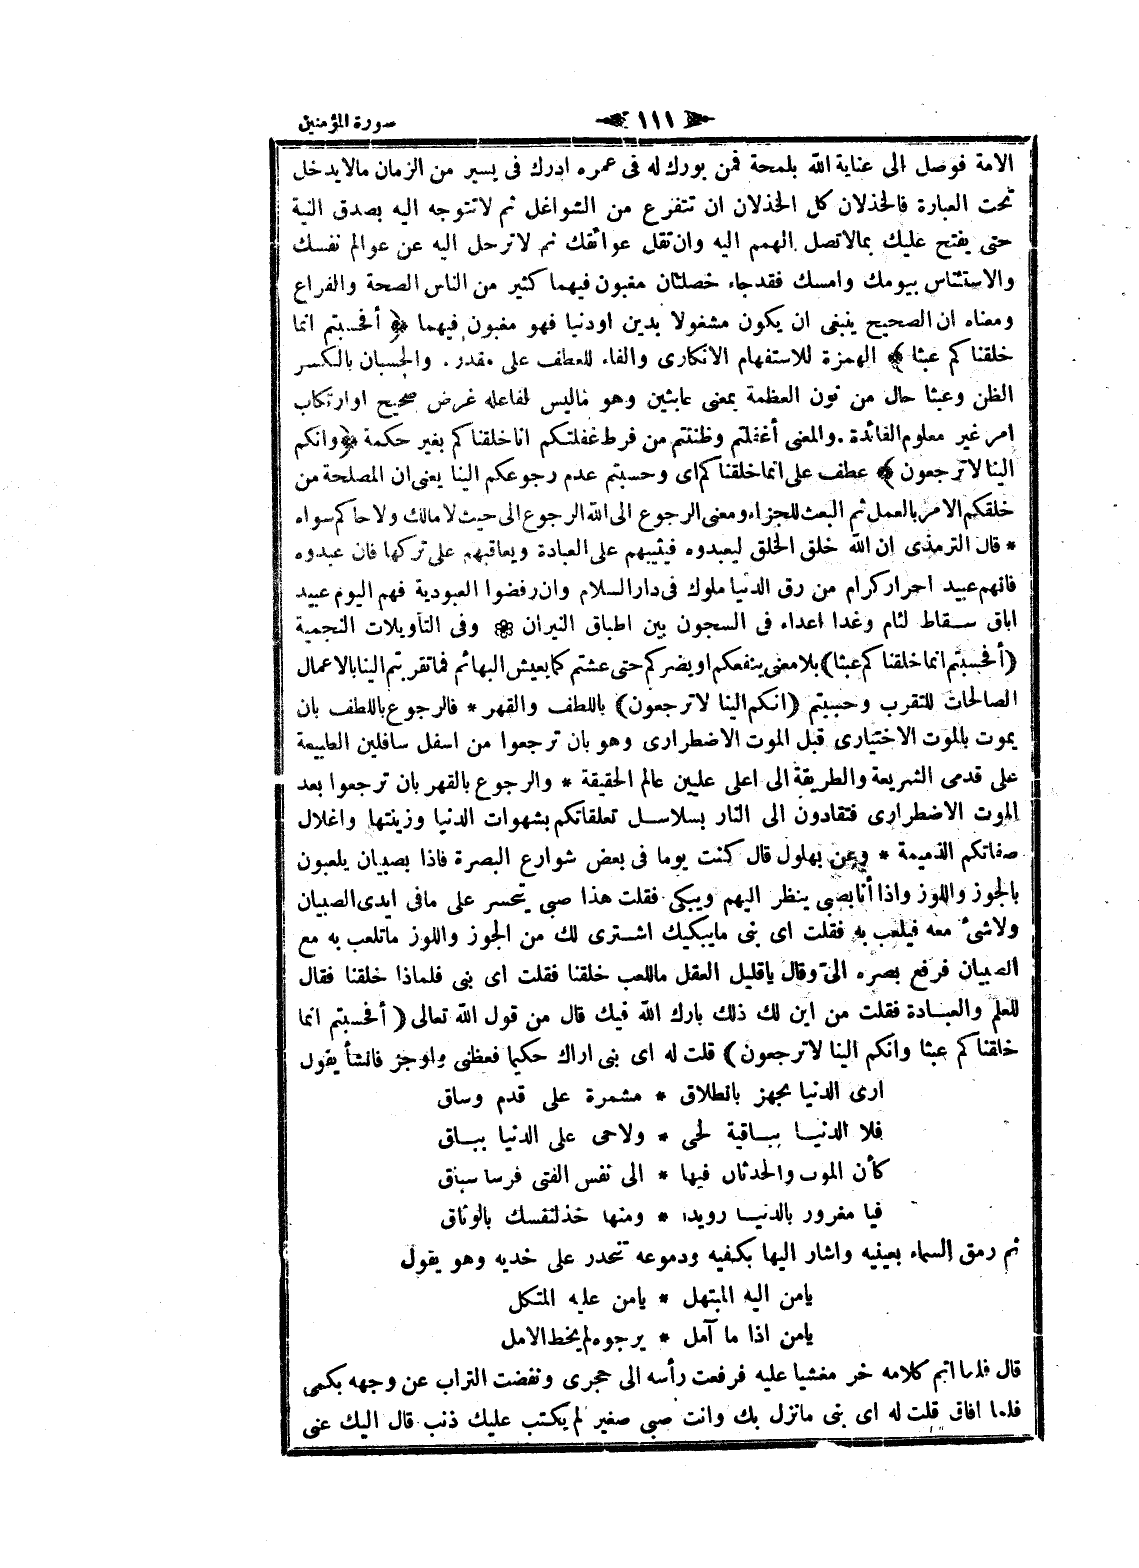 سورة المؤمنين
١١١
الامة فوصل الى عناية الله بلمحة فمن بورك له فى عمره ادرك فى يسير من الزمان مالايدخل
تحت العبارة فالخذلان كل الخذلان ان تتفرغ من الشواغل ثم لاتتوجه اليه بصدق النية
حتى يفتح عليك بمالاتصل الهمم اليه وان تقل عوائقك ثم لاترحل اليه عن عوالم نفسك
والاستئناس بيومك وامسك فقدجاء خصلتان مغبون فيهما كثير من الناس الصحة والفراغ
ومعناه ان الصحيح ينبغى ان يكون مشغولا بدين اودنيا فهو مغبون فيهما ﴿ أفحسبتم انما
خلقناكم عبثا ﴾ الهمزة للاستفهام الانكارى والفاء للعطف على مقدر. والحسبان بالكسر
الظن وعبثا حال من نون العظمة بمعنى عابثين وهو ماليس لفاعله غرض صحيح اوارتكاب
امر غير معلوم الفائدة. والمعنى أغفلتم وظننتم من فرط غفلتكم اناخلقناكم بغير حكمة ﴿وانكم
الينا لاترجعون﴾ عطف على انماخلقناكم اى وحسبتم عدم رجوعكم الينا يعنى ان المصلحة من
خلقكم الامر بالعمل ثم البعث للجزاء ومعنى الرجوع الى الله الرجوع الى حيث لامالك ولاحاكم سواه
* قال الترمذى ان الله خلق الخلق ليعبدوه فيثيبهم على العبادة ويعاقبهم على تركها فان عبدوه
فانهم عبيد احرار كرام من رق الدنيا ملوك فى دارالسلام وان رفضوا العبودية فهم اليوم عبيد
اباق سقاط لئام وغدا اعداء فى السجون بين اطباق النيران ۞ وفى التأويلات النجمية
(أفحسبتم انماخلقناكم عبثا) بلامعنى ينفعكم اويضركم حتى عشتم كمايعيش البهائم فماتقربتم الينابالاعمال
الصالحات للتقرب وحسبتم (انكم الينا لاترجعون) باللطف والقهر * فالرجوع باللطف بان
يموت بالموت الاختيارى قبل الموت الاضطرارى وهو بان ترجعوا من اسفل سافلين الطبيعة
على قدمى الشريعة والطريقة الى اعلى عليين عالم الحقيقة * والرجوع بالقهر بان ترجعوا بعد
الموت الاضطرارى فتقادون الى النار بسلاسل تعلقاتكم بشهوات الدنيا وزينتها واغلال
صفاتكم الذميمة * وعن بهلول قال كنت يوما فى بعض شوارع البصرة فاذا بصبيان يلعبون
بالجوز واللوز واذا أنابصبى ينظر اليهم ويبكى فقلت هذا صبى يتحسر على مافى ايدى الصبيان
ولاشئ معه فيلعب به فقلت اى بنى مايبكيك اشترى لك من الجوز واللوز ماتلعب به مع
الصبيان فرفع بصره الىّ وقال ياقليل العقل ماللعب خلقنا فقلت اى بنى فلماذا خلقنا فقال
للعلم والعبادة فقلت من اين لك ذلك بارك الله فيك قال من قول الله تعالى ( أفحسبتم انما
خلقناكم عبثا وانكم الينا لاترجعون) قلت له اى بنى اراك حكيما فعظنى واوجز فانشأ يقول
ارى الدنيا تجهز بانطلاق * مشمرة على قدم وساق
فلا الدنيا بباقية لحى * ولاحى على الدنيا بباق
كأن الموت والحدثان فيها * الى نفس الفتى فرسا سباق
فيا مغرور بالدنيا رويدا * ومنها خذلنفسك بالوثاق
ثم رمق السماء بعينيه واشار اليها بكفيه ودموعه تتحدر على خديه وهو يقول
يامن اليه المبتهل * يامن عليه المتكل
يامن اذا ما آمل * يرجوه لم يخط الامل
قال فلما اتم كلامه خر مغشيا عليه فرفعت رأسه الى حجرى ونفضت التراب عن وجهه بكمى
فلما افاق قلت له اى بنى مانزل بك وانت صبى صغير لم يكتب عليك ذنب قال اليك عنى